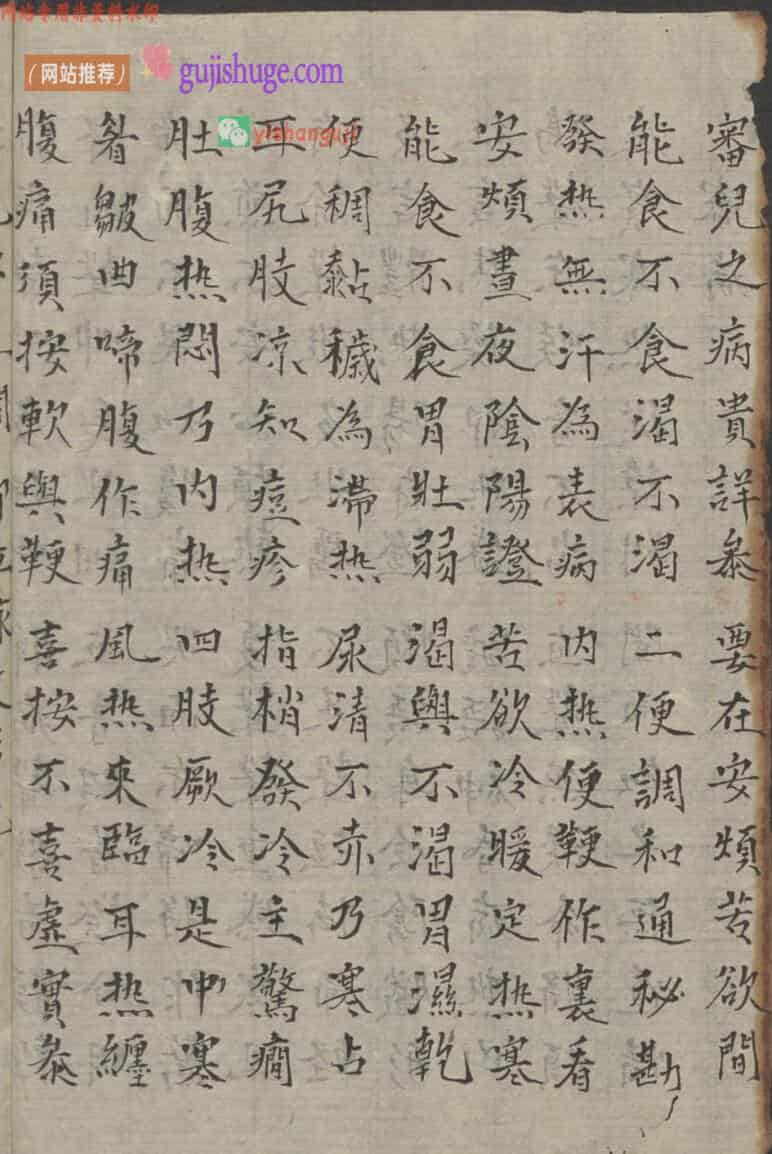 网站专用非资料水印
（网站推荐） gujishuge.com
yishanguji
審兒之病貴詳叅 要在安煩苦欲間
能食不食渴不渴 二便調和通秘勘
發热無汗為表病 内热便鞕作裏看
安煩晝夜陰陽證 苦欲冷暖定热寒
能食不食胃壯弱 渴與不渴胃濕乾
便稠黏穢為滞热 尿清不赤乃寒占
耳尻肢凉知痘疹 指梢發冷主驚癇
肚腹热悶乃内热 四肢厥冷是中寒
皺曲啼腹作痛 風热來臨耳热纏
腹痛須按軟與鞕 喜按不喜虛實叅